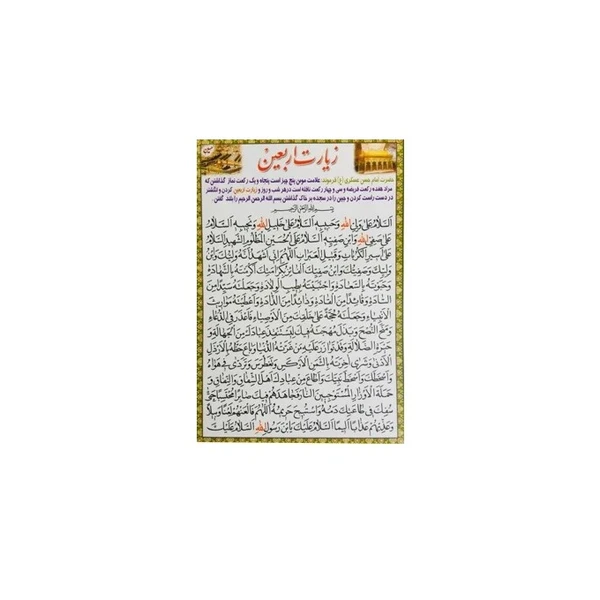 زیارت اربعین
حضرت امام حسن عسکری (ع) فرمودند: علامت مومن پنج چیز است پنجاه و یک رکعت نماز گذاشتن که
مراد هفده رکعت فریضه و سی و چهار رکعت نافله است در هر شب و روز و زیارت اربعین کردن و انگشتر
در دست راست کردن و جبین را در سجده بر خاک گذاشتن بسم الله الرحمن الرحیم را بلند گفتن.
بسم الله الرحمن الرحیم
اَلسَّلامُ عَلی وَلِیِّ اللهِ وَ حَبیبِهِ اَلسَّلامُ عَلی خَلیلِ اللهِ وَ نَجیبِهِ اَلسَّلامُ
عَلی صَفِیِّ اللهِ وَابْنِ صَفِیِّهِ اَلسَّلامُ عَلَی الْحُسَیْنِ الْمَظْلُومِ الشَّهیدِ اَلسَّلامُ
عَلی اَسیرِ الْکُرُباتِ وَ قَتیلِ الْعَبَراتِ اَللّهُمَّ اِنّی اَشْهَدُ اَنَّهُ وَلِیُّکَ وَابْنُ
وَلِیِّکَ وَ صَفِیُّکَ وَابْنُ صَفِیِّکَ الْفائِزُ بِکَرامَتِکَ اَکْرَمْتَهُ بِالشَّهادَةِ
وَ حَبَوْتَهُ بِالسَّعادَةِ وَاجْتَبَیْتَهُ بِطیبِ الْوِلادَةِ وَ جَعَلْتَهُ سَیِّداً مِنَ
السّادَةِ وَ قائِداً مِنَ الْقادَةِ وَ ذائِداً مِنَ الذّادَةِ وَ اَعْطَیْتَهُ مَواریثَ
الْاَنْبِیاءِ وَ جَعَلْتَهُ حُجَّةً عَلی خَلْقِکَ مِنَ الْاَوْصِیاءِ فَاَعْذَرَ فِی الدُّعاءِ
وَ مَنَحَ النُّصْحَ وَ بَذَلَ مُهْجَتَهُ فیکَ لِیَسْتَنْقِذَ عِبادَکَ مِنَ الْجَهالَةِ وَ
حَیْرَةِ الضَّلالَةِ وَ قَدْ تَوازَرَ عَلَیْهِ مَنْ غَرَّتْهُ الدُّنْیا وَ باعَ حَظَّهُ بِالْاَرْذَلِ
الْاَدْنی وَ شَری آخِرَتَهُ بِالثَّمَنِ الْاَوْکَسِ وَ تَغَطْرَسَ وَ تَرَدّی فی هَواهُ
وَ اَسْخَطَکَ وَ اَسْخَطَ نَبِیَّکَ وَ اَطاعَ مِنْ عِبادِکَ اَهْلَ الشِّقاقِ وَ النِّفاقِ وَ
حَمَلَةَ الْاَوْزارِ الْمُسْتَوْجِبینَ النّارَ فَجاهَدَهُمْ فیکَ صابِراً مُحْتَسِباً حَتّی
سُفِکَ فی طاعَتِکَ دَمُهُ وَاسْتُبیحَ حَریمُهُ اَللّهُمَّ فَالْعَنْهُمْ لَعْناً وَبیلاً
وَ عَذِّبْهُمْ عَذاباً اَلیماً اَلسَّلامُ عَلَیْکَ یَابْنَ رَسُولِ اللهِ اَلسَّلامُ عَلَیْکَ